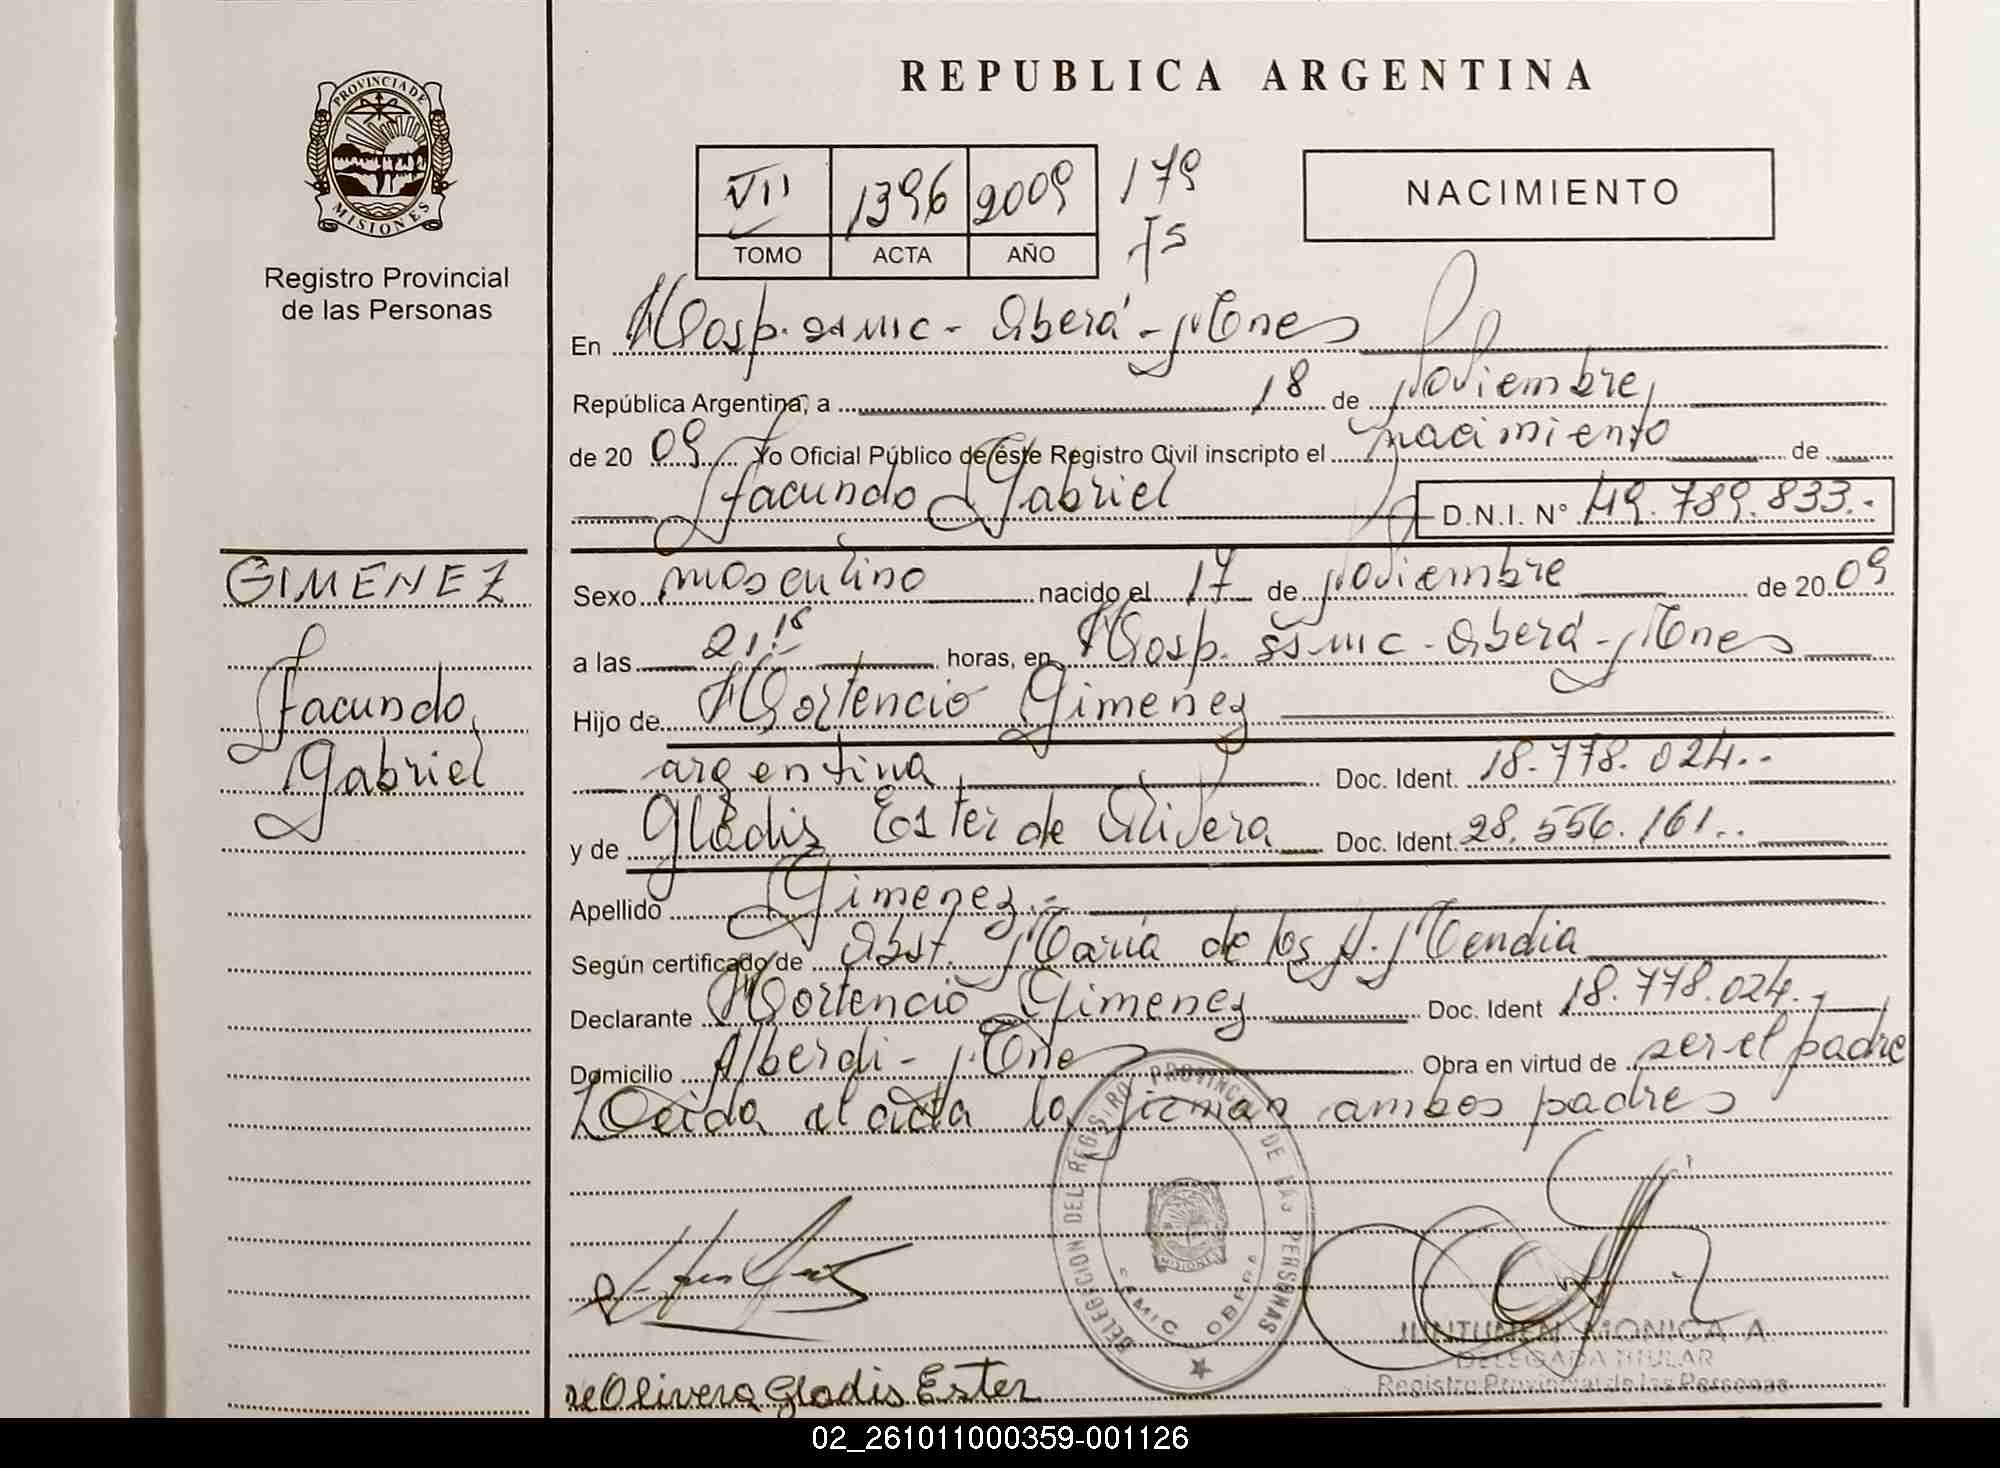 PROVINCIA DE
MISIONES
Registro Provincial
de las Personas
GIMENEZ
Facundo
Gabriel
REPUBLICA ARGENTINA
VII 1396 2009 179
TOMO ACTA AÑO Fs
NACIMIENTO
En Hosp. Samic - Oberá - Mones
República Argentina, a 18 de Noviembre
de 20 09 Yo Oficial Público de éste Registro Civil inscripto el nacimiento de
Facundo Gabriel D.N.I. N° 49.789.833.-
Sexo masculino nacido el 17 de Noviembre de 20 09
a las 21:15 horas, en Hosp. Samic - Oberá - Mones
Hijo de Hortencio Gimenez
argentina Doc. Ident. 18.778.024.-
y de Gladis Ester de Olivera Doc. Ident. 28.556.161.-
Apellido Gimenez.-
Según certificado de Obst. María de los A. Mendia
Declarante Hortencio Gimenez Doc. Ident 18.778.024.-
Domicilio Alberdi - Mones Obra en virtud de ser el padre
Leida el acta la firman ambos padres
DELEGACION DEL REGISTRO PROVINCIAL DE LAS PERSONAS
MISIONES
SAMIC OBERA
JUNTUNEN MONICA A.
DELEGADA TITULAR
Registro Provincial de las Personas
de Olivera Gladis Ester
02_261011000359-001126